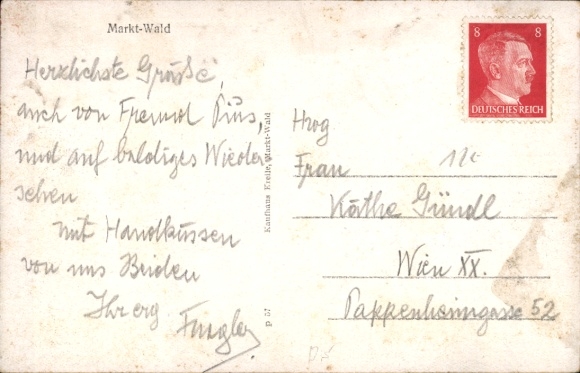 Markt-Wald
Herzlichste Grüße,
auch von Freund Pius,
und auf baldiges Wieder
sehen
mit Handküssen
von uns Beiden
Ihr erg.
Kaufhaus Kreile, Markt-Wald
p 57
8 8
DEUTSCHES REICH
Frau
Käthe Gündl
Wien XX.
Pappenheimgasse 52